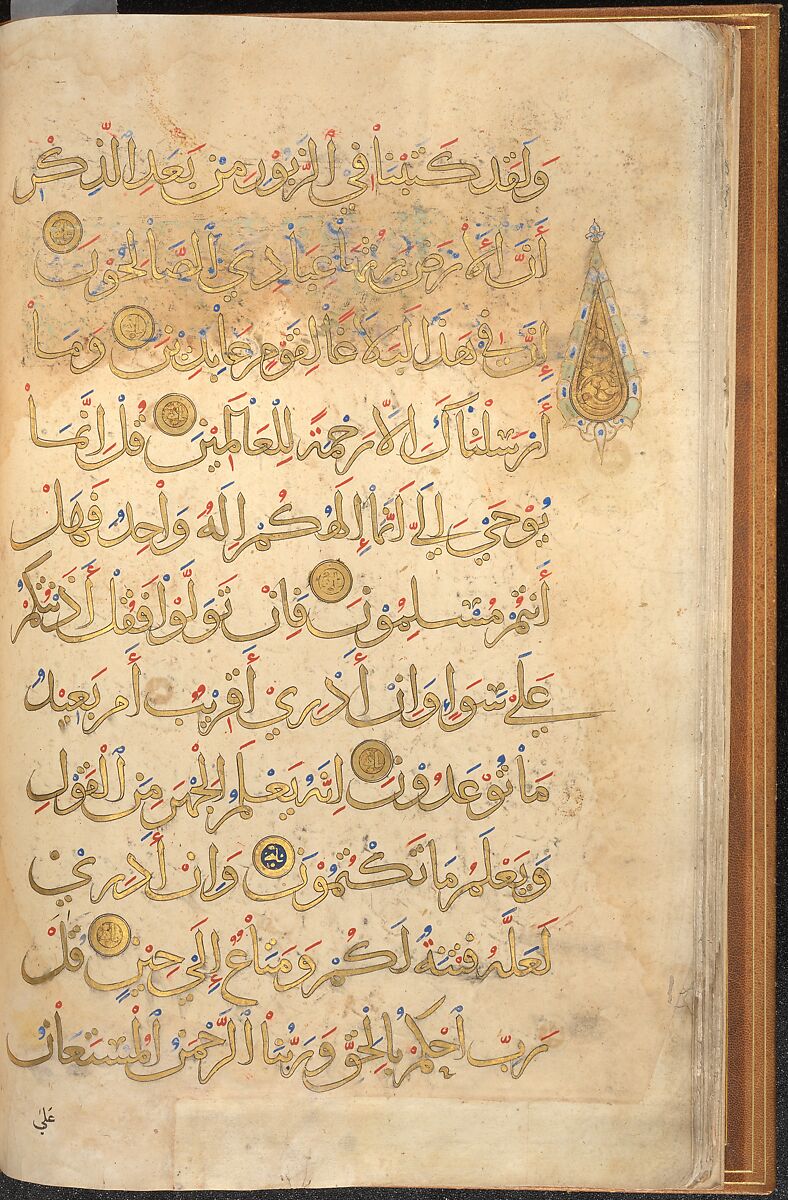 وَلَقَدْ كَتَبْنَا فِي الزَّبُورِ مِنْ بَعْدِ الذِّكْرِ
أَنَّ الْأَرْضَ يَرِثُهَا عِبَادِيَ الصَّالِحُونَ
إِنَّ فِي هَذَا لَبَلَاغًا لِقَوْمٍ عَابِدِينَ وَمَا
أَرْسَلْنَاكَ إِلَّا رَحْمَةً لِلْعَالَمِينَ قُلْ إِنَّمَا
يُوحَى إِلَيَّ أَنَّمَا إِلَهُكُمْ إِلَهٌ وَاحِدٌ فَهَلْ
أَنْتُمْ مُسْلِمُونَ فَإِنْ تَوَلَّوْا فَقُلْ آذَنْتُكُمْ
عَلَى سَوَاءٍ وَإِنْ أَدْرِي أَقَرِيبٌ أَمْ بَعِيدٌ
مَا تُوعَدُونَ إِنَّهُ يَعْلَمُ الْجَهْرَ مِنَ الْقَوْلِ
وَيَعْلَمُ مَا تَكْتُمُونَ وَإِنْ أَدْرِي
لَعَلَّهُ فِتْنَةٌ لَكُمْ وَمَتَاعٌ إِلَى حِينٍ قُلْ
رَبِّ احْكُمْ بِالْحَقِّ وَرَبُّنَا الرَّحْمَنُ الْمُسْتَعَانُ
عَلَى